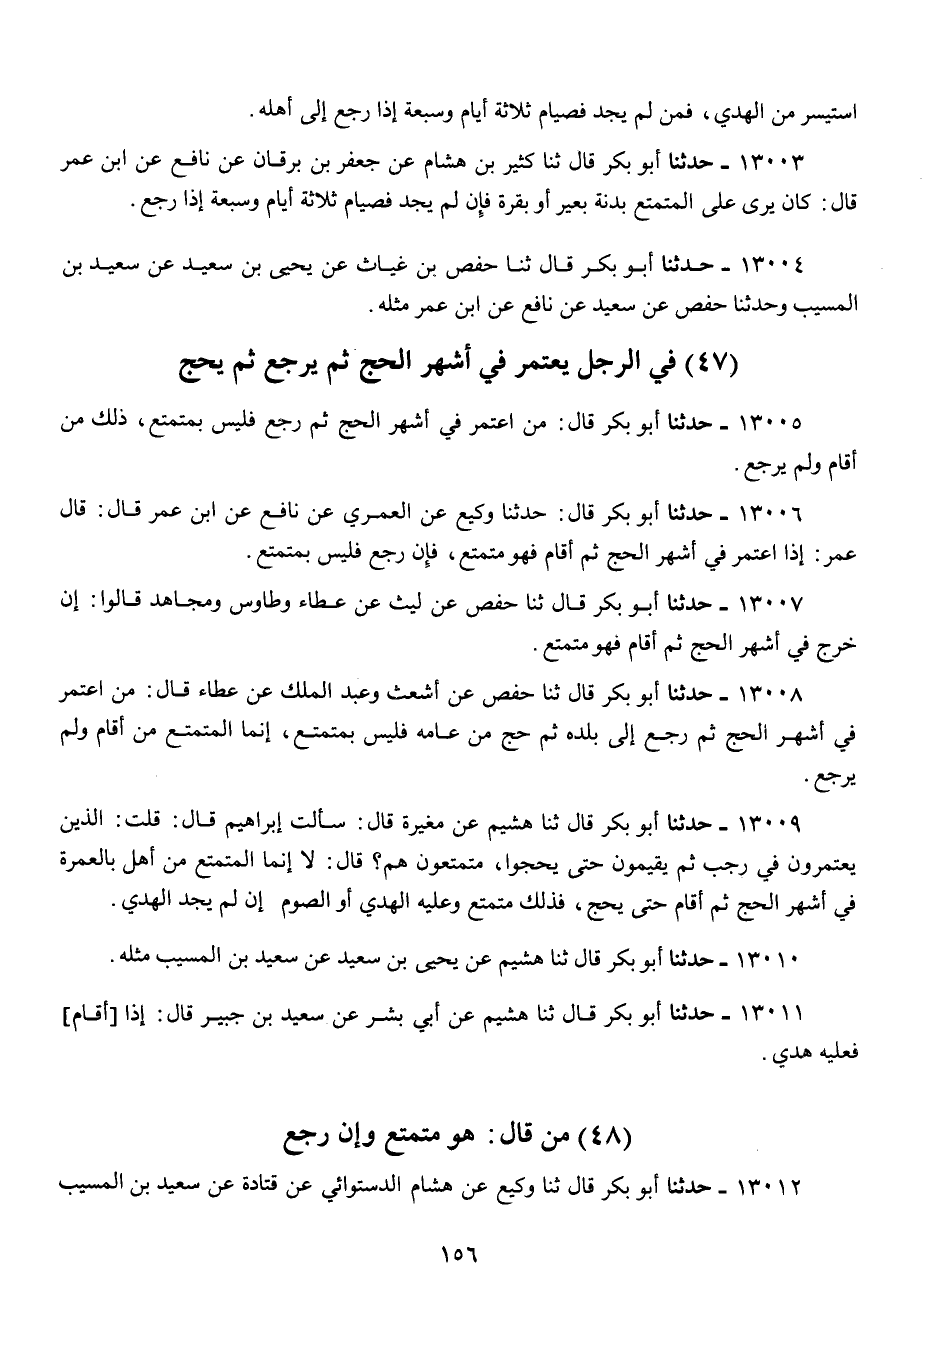 استيسر من الهدي، فمن لم يجد فصيام ثلاثة أيام وسبعة إذا رجع إلى أهله.
١٣٠٠٣ ـ حدثنا أبو بكر قال ثنا كثير بن هشام عن جعفر بن برقان عن نافع عن ابن عمر
قال: كان يرى على المتمتع بدنة بعير أو بقرة فإن لم يجد فصيام ثلاثة أيام وسبعة إذا رجع.
١٣٠٠٤ ـ حدثنا أبو بكر قال ثنا حفص بن غياث عن يحيى بن سعيد عن سعيد بن
المسيب وحدثنا حفص عن سعيد عن نافع عن ابن عمر مثله.
(٤٧) في الرجل يعتمر في أشهر الحج ثم يرجع ثم يحج
١٣٠٠٥ ـ حدثنا أبو بكر قال: من اعتمر في أشهر الحج ثم رجع فليس بمتمتع، ذلك من
أقام ولم يرجع.
١٣٠٠٦ ـ حدثنا أبو بكر قال: حدثنا وكيع عن العمري عن نافع عن ابن عمر قال: قال
عمر: إذا اعتمر في أشهر الحج ثم أقام فهو متمتع، فإن رجع فليس بمتمتع.
١٣٠٠٧ ـ حدثنا أبو بكر قال ثنا حفص عن ليث عن عطاء وطاوس ومجاهد قالوا: إن
خرج في أشهر الحج ثم أقام فهو متمتع.
١٣٠٠٨ ـ حدثنا أبو بكر قال ثنا حفص عن أشعث وعبد الملك عن عطاء قال: من اعتمر
في أشهر الحج ثم رجع إلى بلده ثم حج من عامه فليس بمتمتع، إنما المتمتع من أقام ولم
يرجع.
١٣٠٠٩ ـ حدثنا أبو بكر قال ثنا هشيم عن مغيرة قال: سألت إبراهيم قال: قلت: الذين
يعتمرون في رجب ثم يقيمون حتى يحجوا، متمتعون هم؟ قال: لا إنما المتمتع من أهل بالعمرة
في أشهر الحج ثم أقام حتى يحج، فذلك متمتع وعليه الهدي أو الصوم إن لم يجد الهدي.
١٣٠١٠ ـ حدثنا أبو بكر قال ثنا هشيم عن يحيى بن سعيد عن سعيد بن المسيب مثله.
١٣٠١١ ـ حدثنا أبو بكر قال ثنا هشيم عن أبي بشر عن سعيد بن جبير قال: إذا [أقام]
فعليه هدي.
(٤٨) من قال: هو متمتع وإن رجع
١٣٠١٢ ـ حدثنا أبو بكر قال ثنا وكيع عن هشام الدستوائي عن قتادة عن سعيد بن المسيب
١٥٦